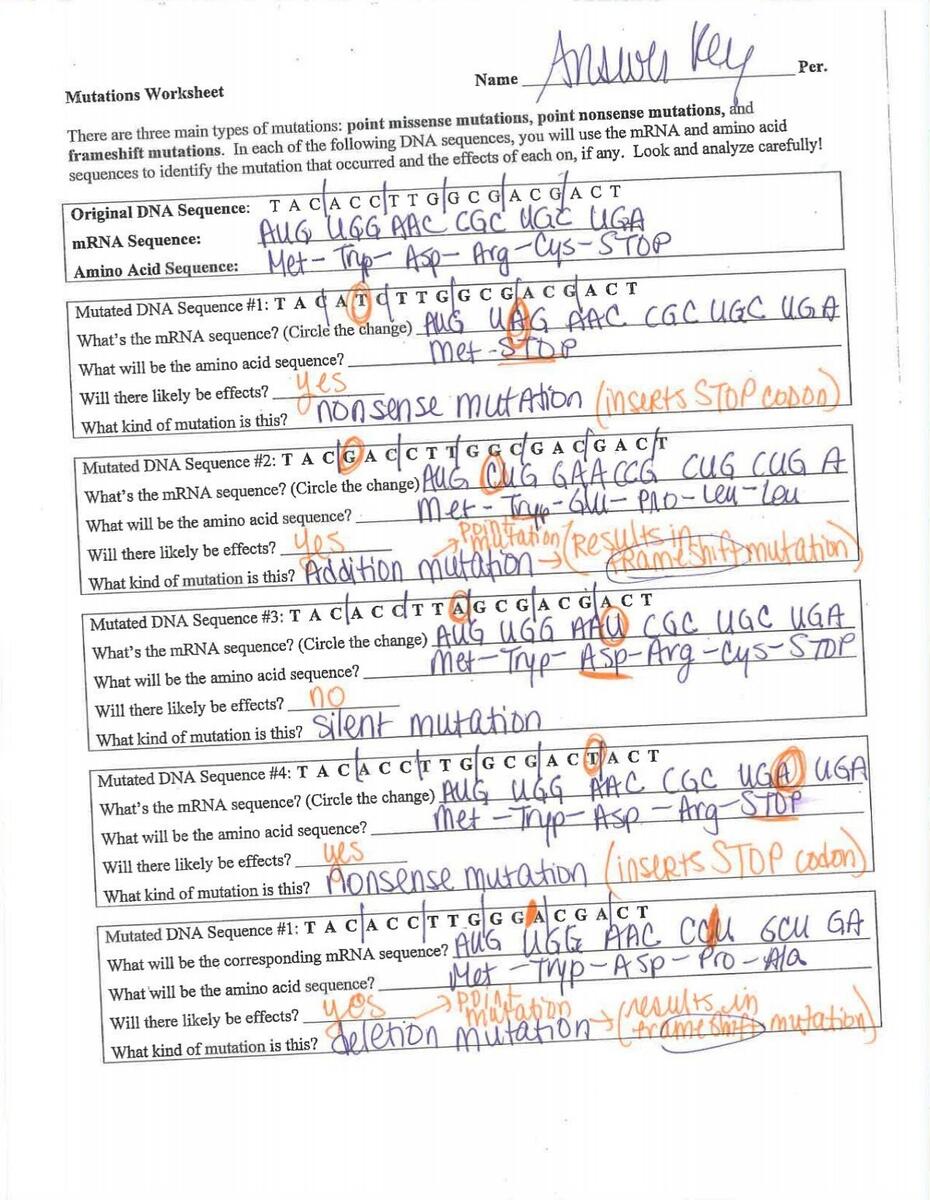 Name Answer Key Per.
Mutations Worksheet
There are three main types of mutations: point missense mutations, point nonsense mutations, and
frameshift mutations. In each of the following DNA sequences, you will use the mRNA and amino acid
sequences to identify the mutation that occurred and the effects of each on, if any. Look and analyze carefully!
Original DNA Sequence: T A C A C C T T G G C G A C G A C T
mRNA Sequence: AUG UGG AAC CGC UGC UGA
Amino Acid Sequence: Met - Tryp - Asp - Arg - Cys - STOP
Mutated DNA Sequence #1: T A C A T C T T G G C G A C G A C T
What's the mRNA sequence? (Circle the change) AUG UAG AAC CGC UGC UGA
What will be the amino acid sequence? Met - STOP
Will there likely be effects? yes
What kind of mutation is this? nonsense mutation (inserts STOP codon)
Mutated DNA Sequence #2: T A C G A C C T T G G C G A C G A C T
What's the mRNA sequence? (Circle the change) AUG CUG GAA CCG CUG CUG A
What will be the amino acid sequence? Met - Tryp - Glu - Pro - Leu - Leu
Will there likely be effects? yes → point mutation (Results in
What kind of mutation is this? Addition mutation → frameshift mutation)
Mutated DNA Sequence #3: T A C A C C T T A G C G A C G A C T
What's the mRNA sequence? (Circle the change) AUG UGG AAU CGC UGC UGA
What will be the amino acid sequence? Met - Tryp - Asp - Arg - Cys - STOP
Will there likely be effects? no
What kind of mutation is this? silent mutation
Mutated DNA Sequence #4: T A C A C C T T G G C G A C T A C T
What's the mRNA sequence? (Circle the change) AUG UGG AAC CGC UGA UGA
What will be the amino acid sequence? Met - Tryp - Asp - Arg - STOP
Will there likely be effects? yes
What kind of mutation is this? Nonsense mutation (inserts STOP codon)
Mutated DNA Sequence #1: T A C A C C T T G G G A C G A C T
What will be the corresponding mRNA sequence? AUG UGG AAC CCU GCU GA
What will be the amino acid sequence? Met - Tryp - Asp - Pro - Ala
Will there likely be effects? yes → point mutation (results in
What kind of mutation is this? deletion mutation → frameshift mutation)